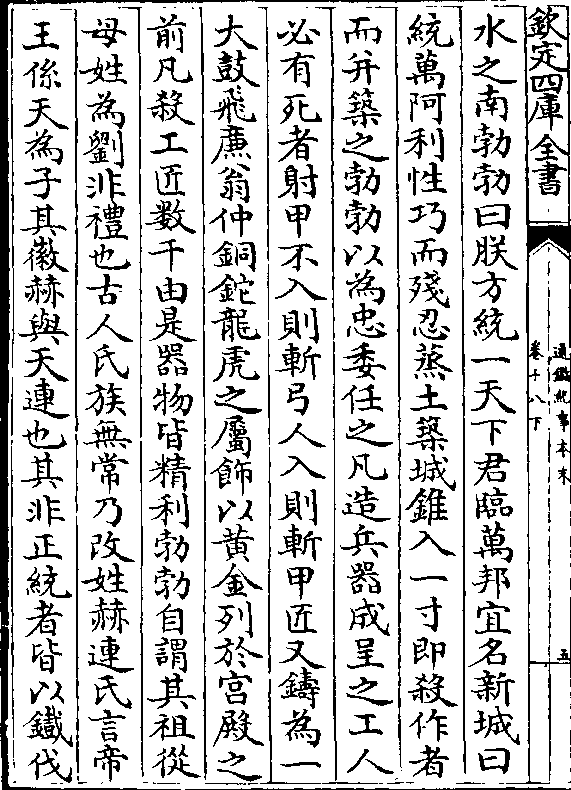 欽定四庫全書
通鑑紀事本末
卷十八下
五
水之南勃勃曰朕方統一天下君臨萬邦宜名新城曰
統萬阿利性巧而殘忍蒸土築城錐入一寸即殺作者
而并築之勃勃以為忠委任之凡造兵器成呈之工人
必有死者射甲不入則斬弓人入則斬甲匠又鑄為一
大鼓飛廉翁仲銅鉈龍虎之屬飾以黄金列於宮殿之
前凡殺工匠數千由是器物皆精利勃勃自謂其祖從
母姓為劉非禮也古人氏族無常乃改姓赫連氏言帝
王係天為子其徽赫與天連也其非正統者皆以鐵伐